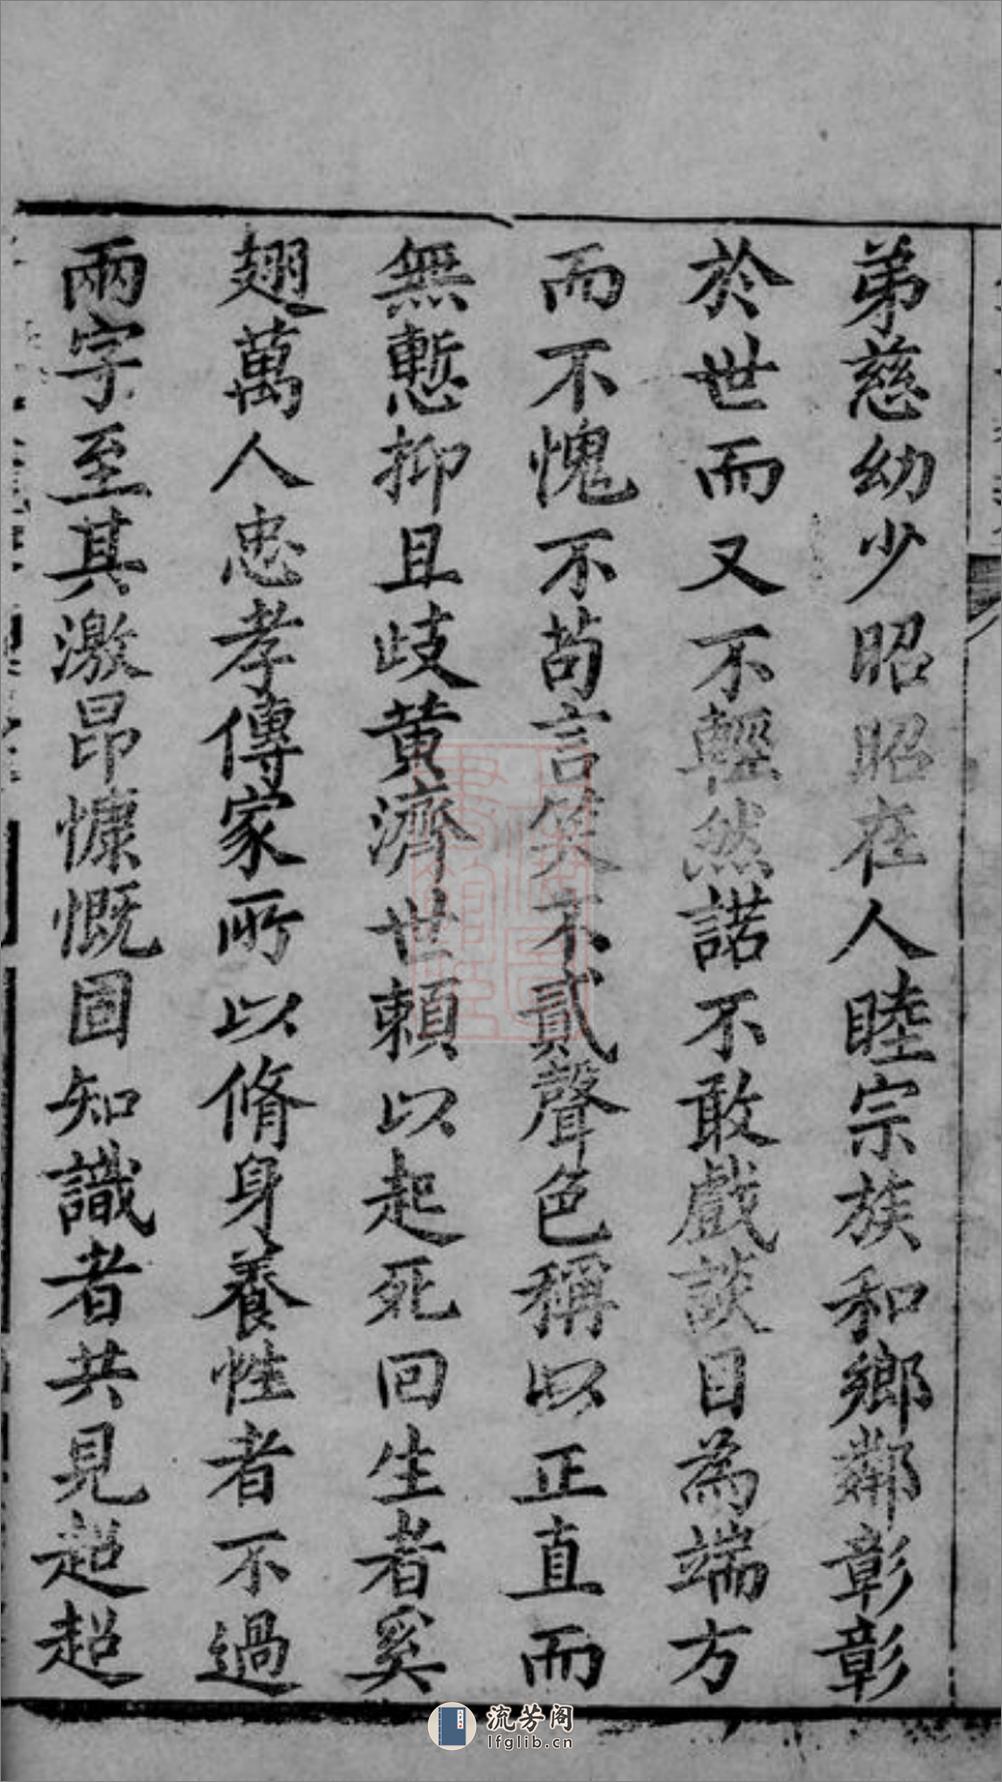 弟慈幼少昭昭在人睦宗族和鄉鄰彰彰
於世而又不輕然諾不敢戲談目為端方
而不愧不苟言笑不貳聲色稱以正直而
無慙抑且歧黄濟世頼以起死回生者奚
翅萬人忠孝傳家所以脩身養性者不過
兩字至其激昂慷慨固知識者共見超超
流芳阁
lfglib.cn